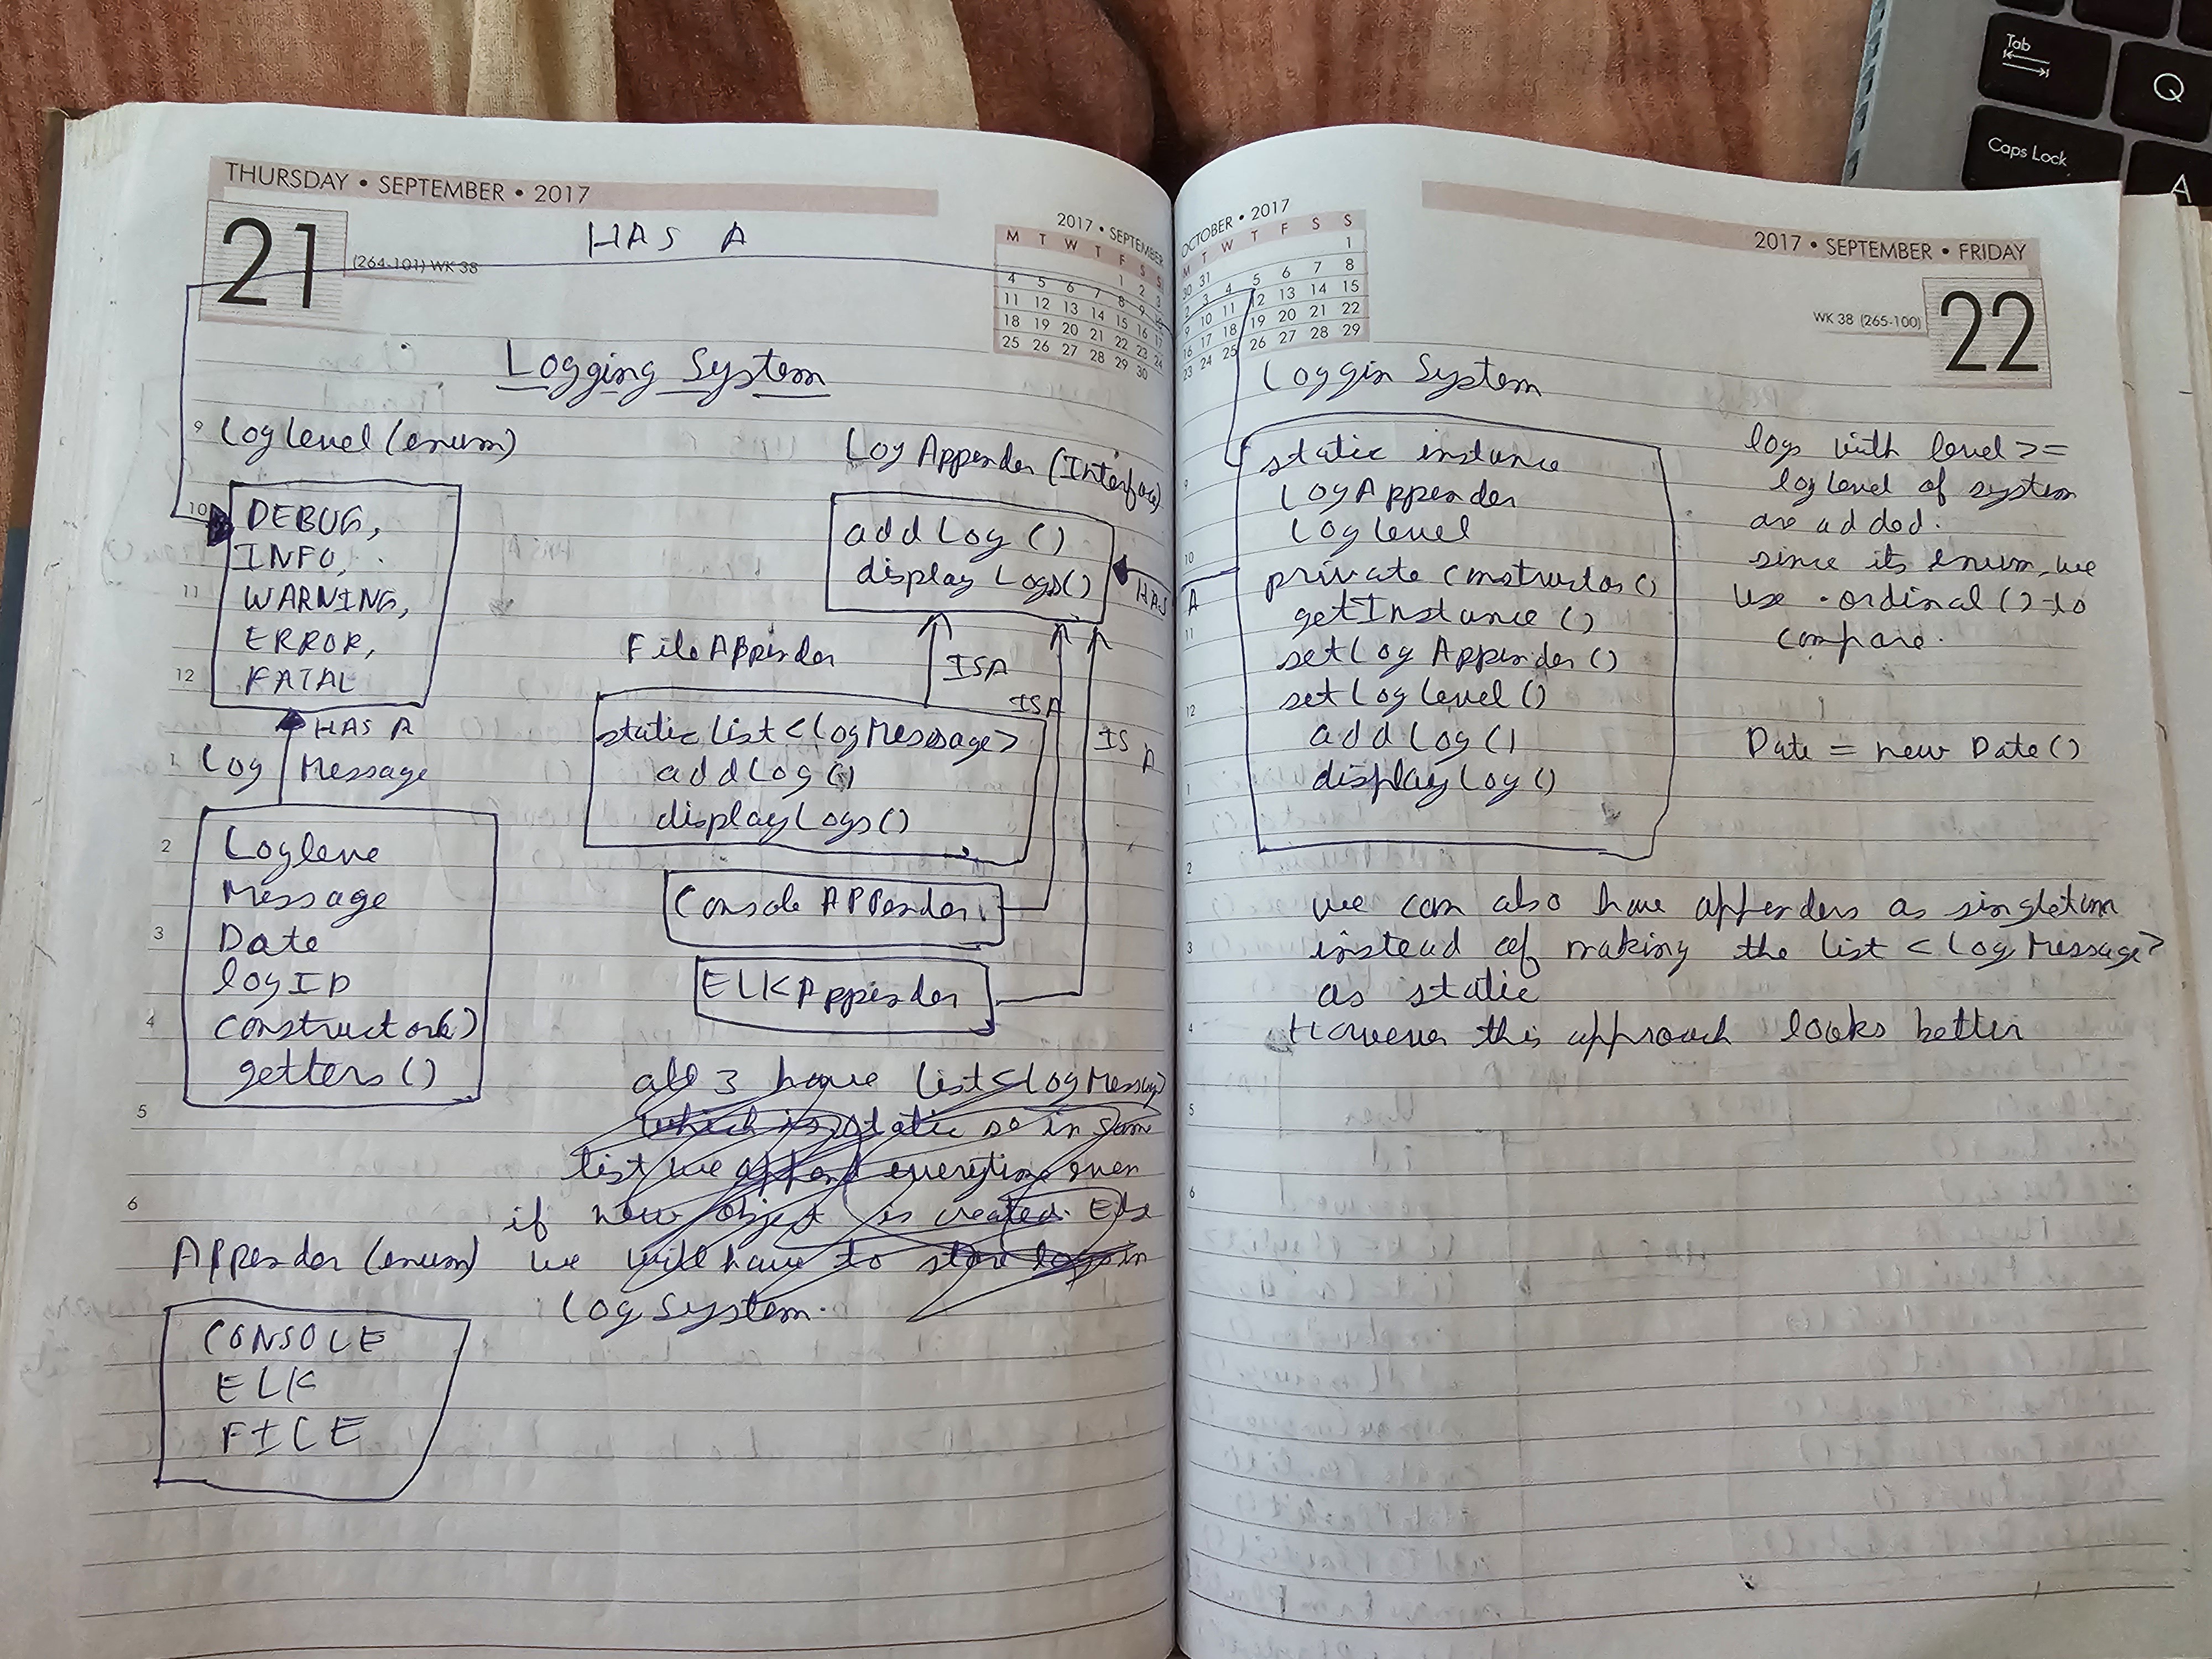 THURSDAY • SEPTEMBER • 2017
21
(264-101) WK 38
HAS A
2017 • SEPTEMBER
M T W T F S S
1 2 3
4 5 6 7 8 9 10
11 12 13 14 15 16 17
18 19 20 21 22 23 24
25 26 27 28 29 30
Logging System
LogLevel (enum)
DEBUG,
INFO,
WARNING,
ERROR,
FATAL
HAS A
Log Message
Logleve
Message
Date
logID
constructor()
getters ()
Appender (enum)
CONSOLE
ELK
FILE
Log Appender (Interface)
add Log ()
display Logs()
HAS
FileAppender
ISA
ISA
IS
A
static List < LogMessage >
addLog ()
displayLogs ()
Console APPender
ELKAppender
all 3 have List<LogMessage>
which is static so in same
list we append everything even
if new object is created. Else
we will have to store logs in
Log System.
OCTOBER • 2017
M T W T F S S
30 31 1
2 3 4 5 6 7 8
9 10 11 12 13 14 15
16 17 18 19 20 21 22
23 24 25 26 27 28 29
2017 • SEPTEMBER • FRIDAY
WK 38 (265-100)
22
Loggin System
static instance
LogAppender
Loglevel
A
private constructor ()
getInstance ()
setLog Appender ()
setLoglevel ()
addLog ()
displayLog ()
logs with level >=
loglevel of system
are added.
since its enum, we
use .ordinal () to
compare.
Date = new Date ()
we can also have appenders as singleton
instead of making the list < Log Message>
as static
However this approach looks better
Tab
Q
Caps Lock
A